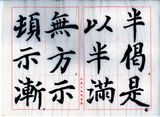 半偈是
以半滿
無方示
頓示漸